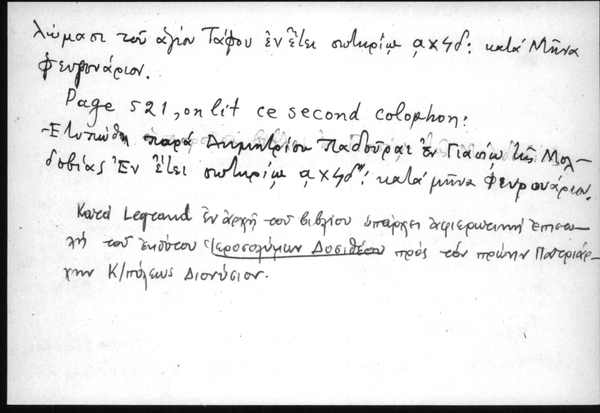 λώμασι τοῦ ἁγίου Τάφου ἐν ἔτει σωτηρίῳ ͵αχϟδ: κατὰ Μῆνα
Φευρουάριον.
Page 521, on lit ce second colophon:
Ετυπώθη παρά Δημητρίου Παδούραι ἐν Γιασίῳ τῆς Μολ-
δοβίας Ἐν ἔτει σωτηρίῳ ͵αχϟδῳ: κατά μῆνα Φευρουάριον.
Κατά Legrand ἐν ἀρχῇ τοῦ βιβλίου ὑπάρχει ἀφιερωτική ἐπιστο-
λή τοῦ ἐκδότου Ἱεροσολύμων Δοσιθέου πρός τόν πρώην Πατριάρ-
χην Κ/πόλεως Διονύσιον.